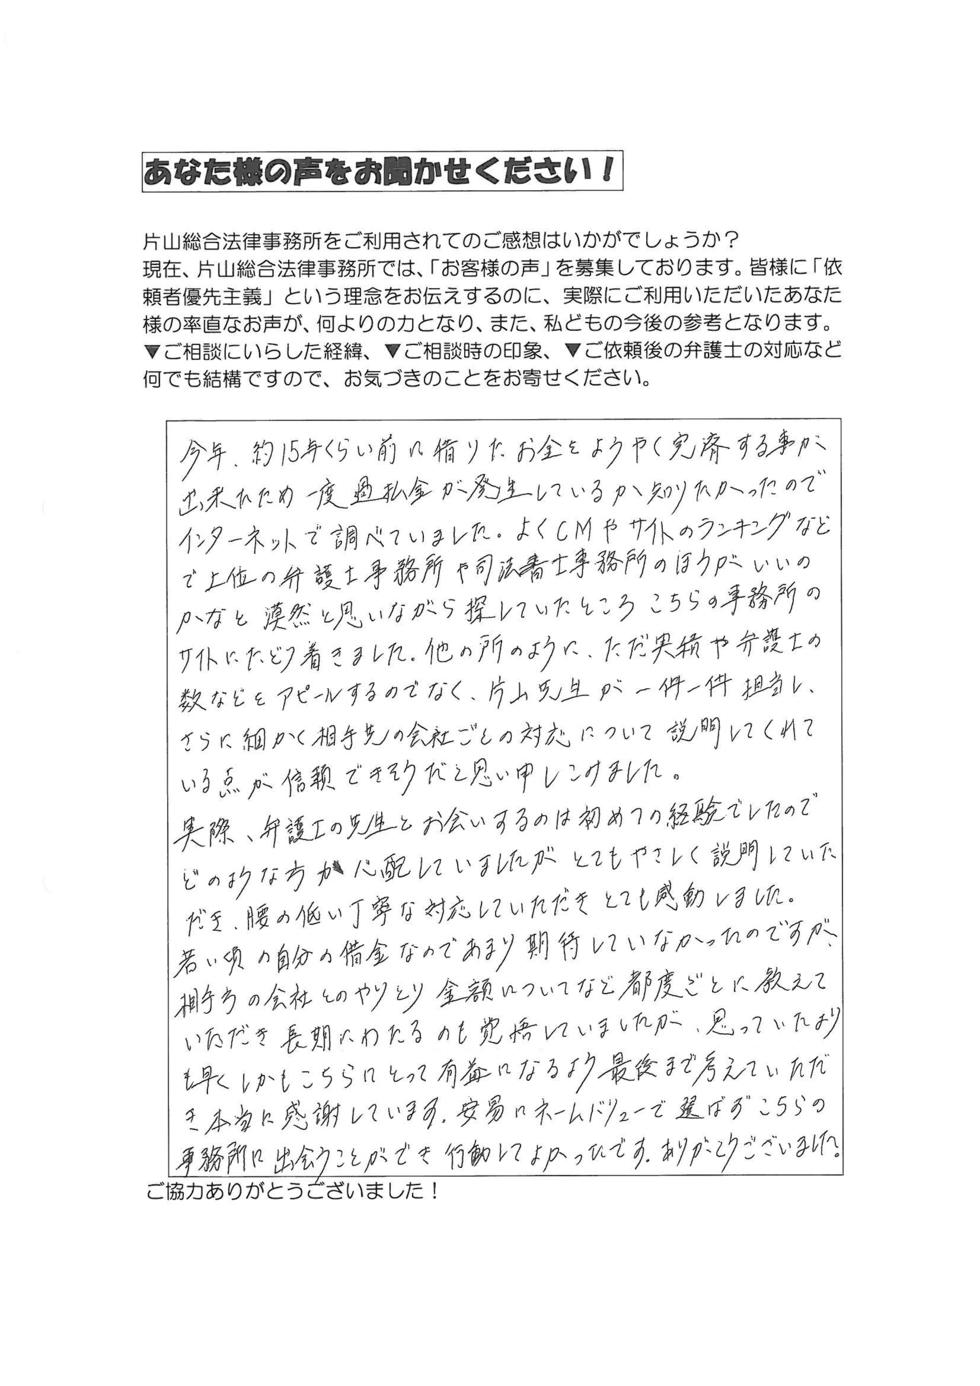 あなた様の声をお聞かせください！
片山総合法律事務所をご利用されてのご感想はいかがでしょうか？
現在、片山総合法律事務所では、「お客様の声」を募集しております。皆様に「依
頼者優先主義」という理念をお伝えするのに、実際にご利用いただいたあなた
様の率直なお声が、何よりの力となり、また、私どもの今後の参考となります。
▼ご相談にいらした経緯、▼ご相談時の印象、▼ご依頼後の弁護士の対応など
何でも結構ですので、お気づきのことをお寄せください。
今年、約15年くらい前に借りたお金をようやく完済する事が
出来たため一度過払金が発生しているか知りたかったので
インターネットで調べていました。よくCMやサイトのランキングなど
で上位の弁護士事務所や司法書士事務所のほうがいいの
かなと漠然と思いながら探していたところこちらの事務所の
サイトにたどり着きました。他の所のように、ただ実績や弁護士の
数などをアピールするのでなく、片山先生が一件一件担当し、
さらに細かく相手先の会社ごとの対応について説明してくれて
いる点が信頼できそうだと思い申しこみました。
実際、弁護士の先生とお会いするのは初めての経験でしたので
どのような方か心配していましたがとてもやさしく説明していた
だき、腰の低い丁寧な対応していただきとても感動しました。
若い頃の自分の借金なのであまり期待していなかったのですが、
相手方の会社とのやりとり金額についてなど都度ごとに教えて
いただき長期にわたるのも覚悟していましたが、思っていたより
も早くしかもこちらにとって有益になるよう最後まで考えていただ
き本当に感謝しています。安易にネームバリューで選ばずこちらの
事務所に出会うことができ行動してよかったです。ありがとうございました。
ご協力ありがとうございました！